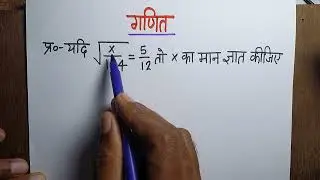 गणित
प्र०- यदि √x/ = 5/12 तो x का मान ज्ञात कीजिए